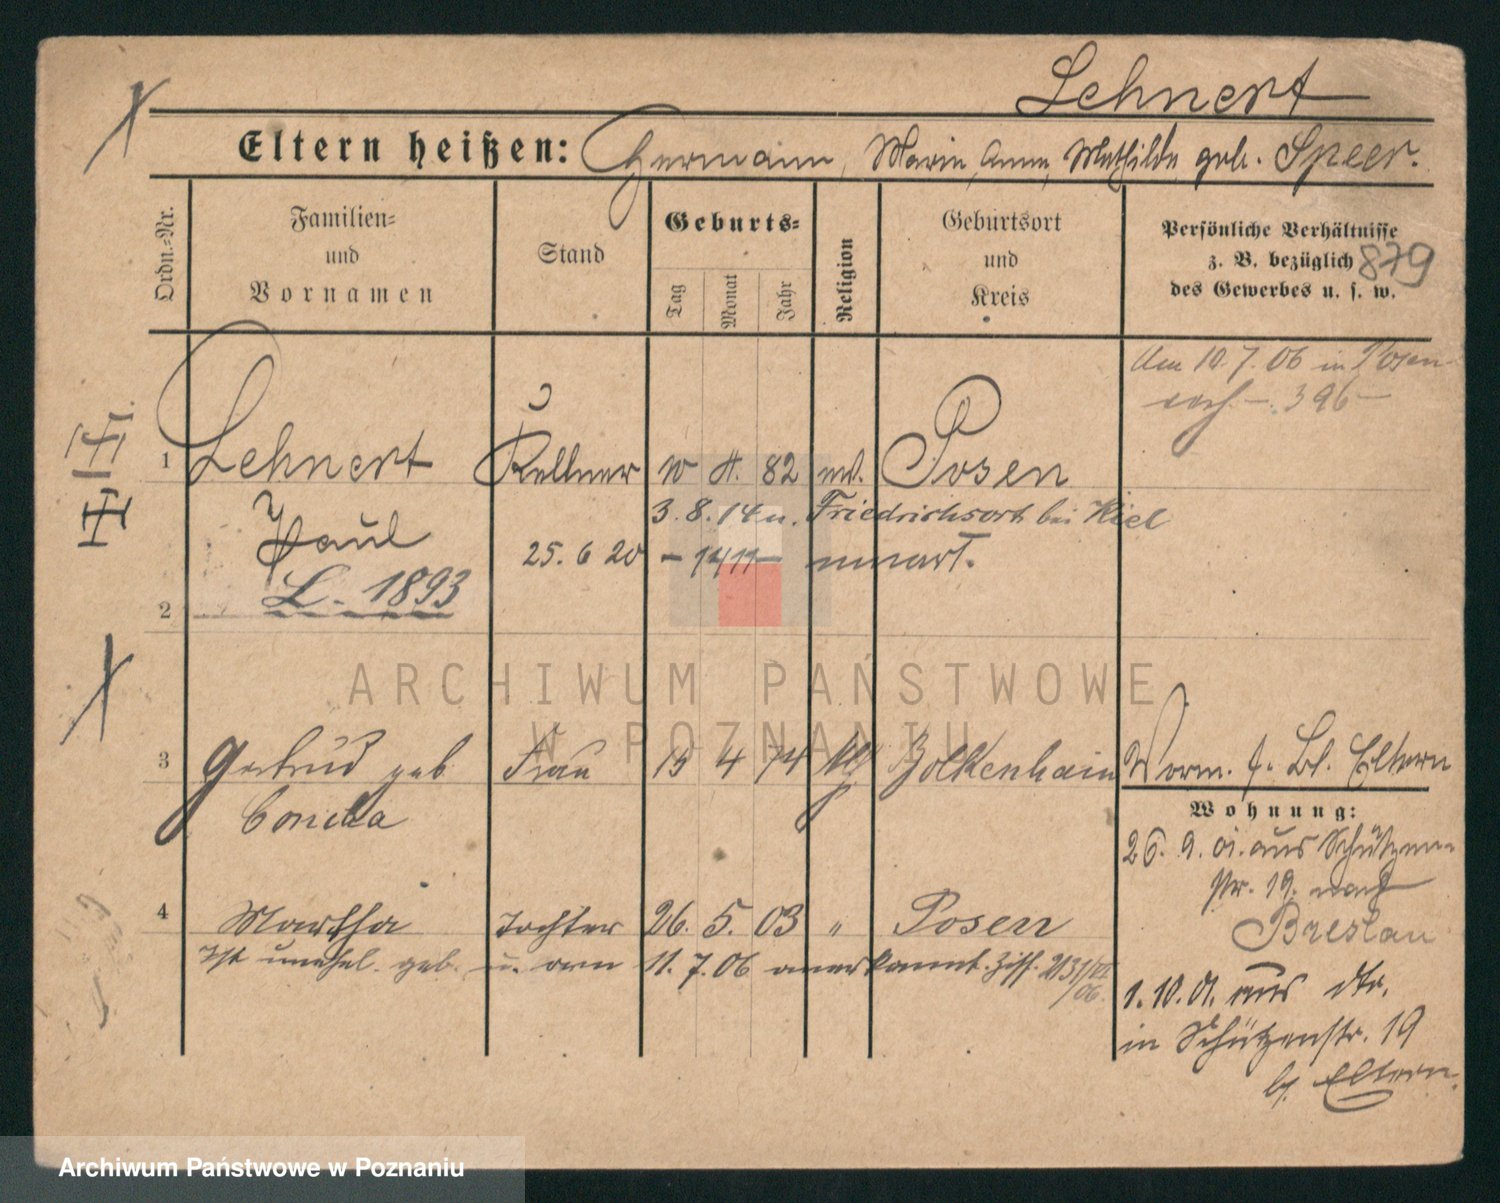 Lehnert
Eltern heißen: Hermann, Marie, Anna, Mathilde geb. Speer.
Ordn.-Nr.
Familien- und Vornamen
Stand
Geburts-
Tag
Monat
Jahr
Religion
Geburtsort und Kreis
Persönliche Verhältnisse
z. B. bezüglich
des Gewerbes u. s. w.
879
Am 10.7.06 in Posen
396
1 Lehnert Kellner 10 82 Posen
3.8.14 u. Friedrichsort bei Kiel
Paul
25.6 20 - 1411 -
L. 1893
2
3 Gertrud geb Frau 15 4 74 Bolkenhain
Worm. f. Bl. Eltern
Wohnung:
26. 9. 01. aus Schützen-
str. 19. nach
Breslau
4 Martha Tochter 26. 5. 03 " Posen
Ist unehel. geb. u. am 11. 7. 06 anerkannt. Ziff.
1. 10. 01. aus dto.
in Schützenstr. 19
b/ Eltern.
ARCHIWUM PAŃSTWOWE
W POZNANIU
Archiwum Państwowe w Poznaniu